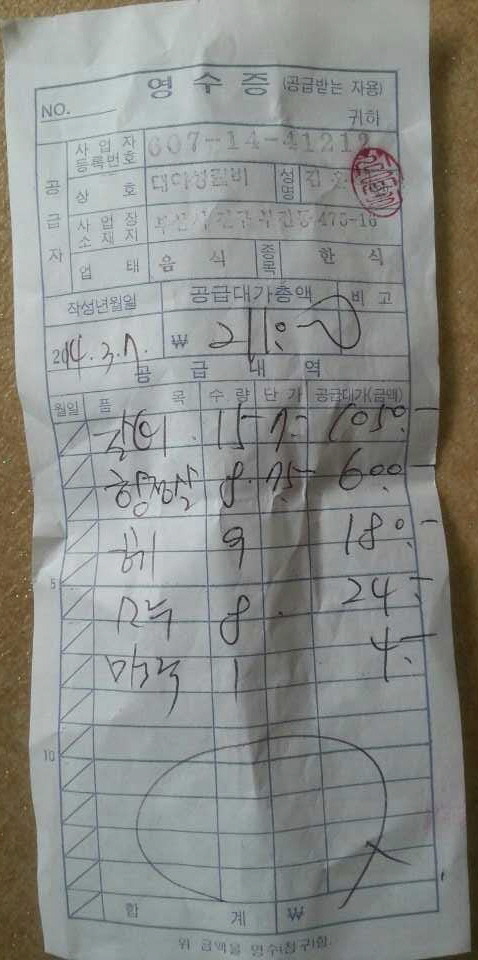 영 수 증 (공급받는 자용)
NO. 귀하
공급자
사업자등록번호 607-14-41212
상 호 성명 김
사업장소재지 475-16
업 태 음 식 종목 한 식
작성년월일 공급대가총액 비 고
2014. 3. 7. ₩ 211:
공 급 내 역
월일 품 목 수 량 단 가 공급대가(금액)
15 7.- 1050.-
8. 7.5 600.-
9 180.-
5
8 24.-
맥주 1 4.-
10
합 계 ₩
위 금액을 영수(청구)함.